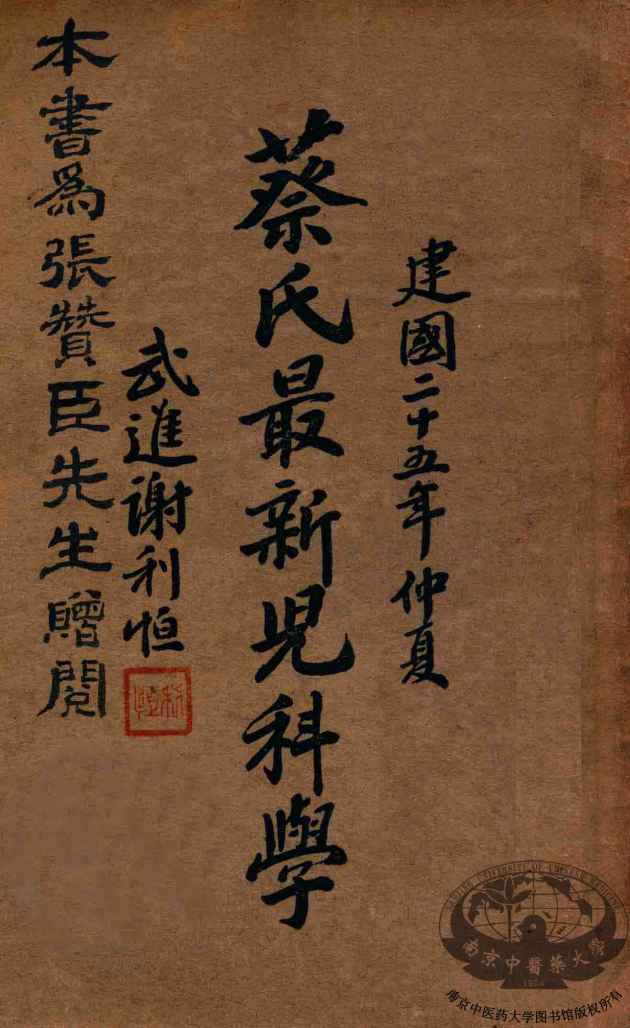 建國二十五年仲夏
蔡氏最新児科學
武進謝利恒
利恒
本書爲張贊臣先生贈閱
NANJING UNIVERSITY OF CHINESE MEDICINE
南京中醫藥大學
南京中医药大学图书馆版权所有